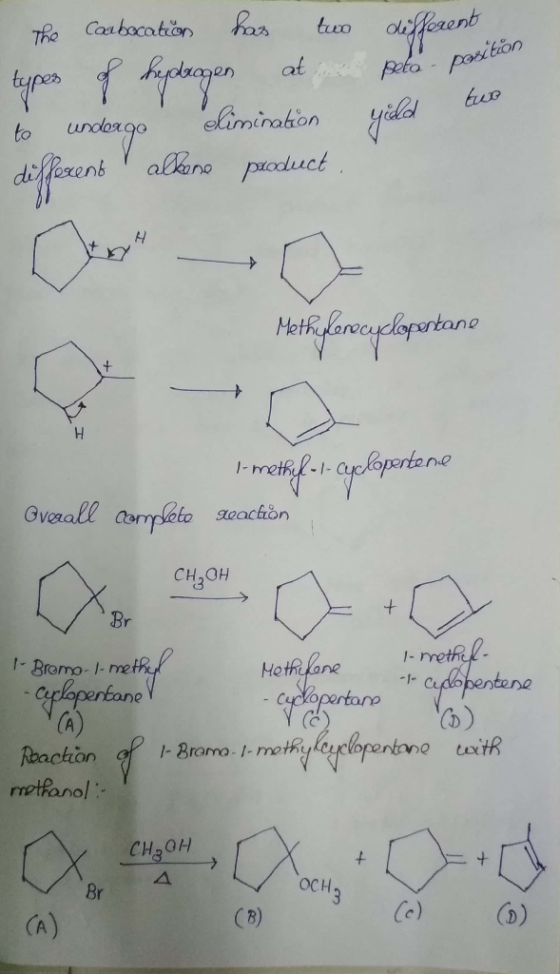 The Carbocation has two different
types of hydrogen at Beta - position
to undergo elimination yield two
different alkene product.
+ H
Methylenecyclopentane
+
H
1-methyl-1-cyclopentene
Overall complete reaction
CH3OH
Br
+
1-Bromo-1-methyl
-cyclopentane
(A)
Methylene
-cyclopentane
(C)
1-methyl-
-1-cyclopentene
(D)
Reaction of 1-Bromo-1-methylcyclopentane with
methanol:-
CH3OH
Δ
Br
OCH3
+ +
(A) (B) (C) (D)